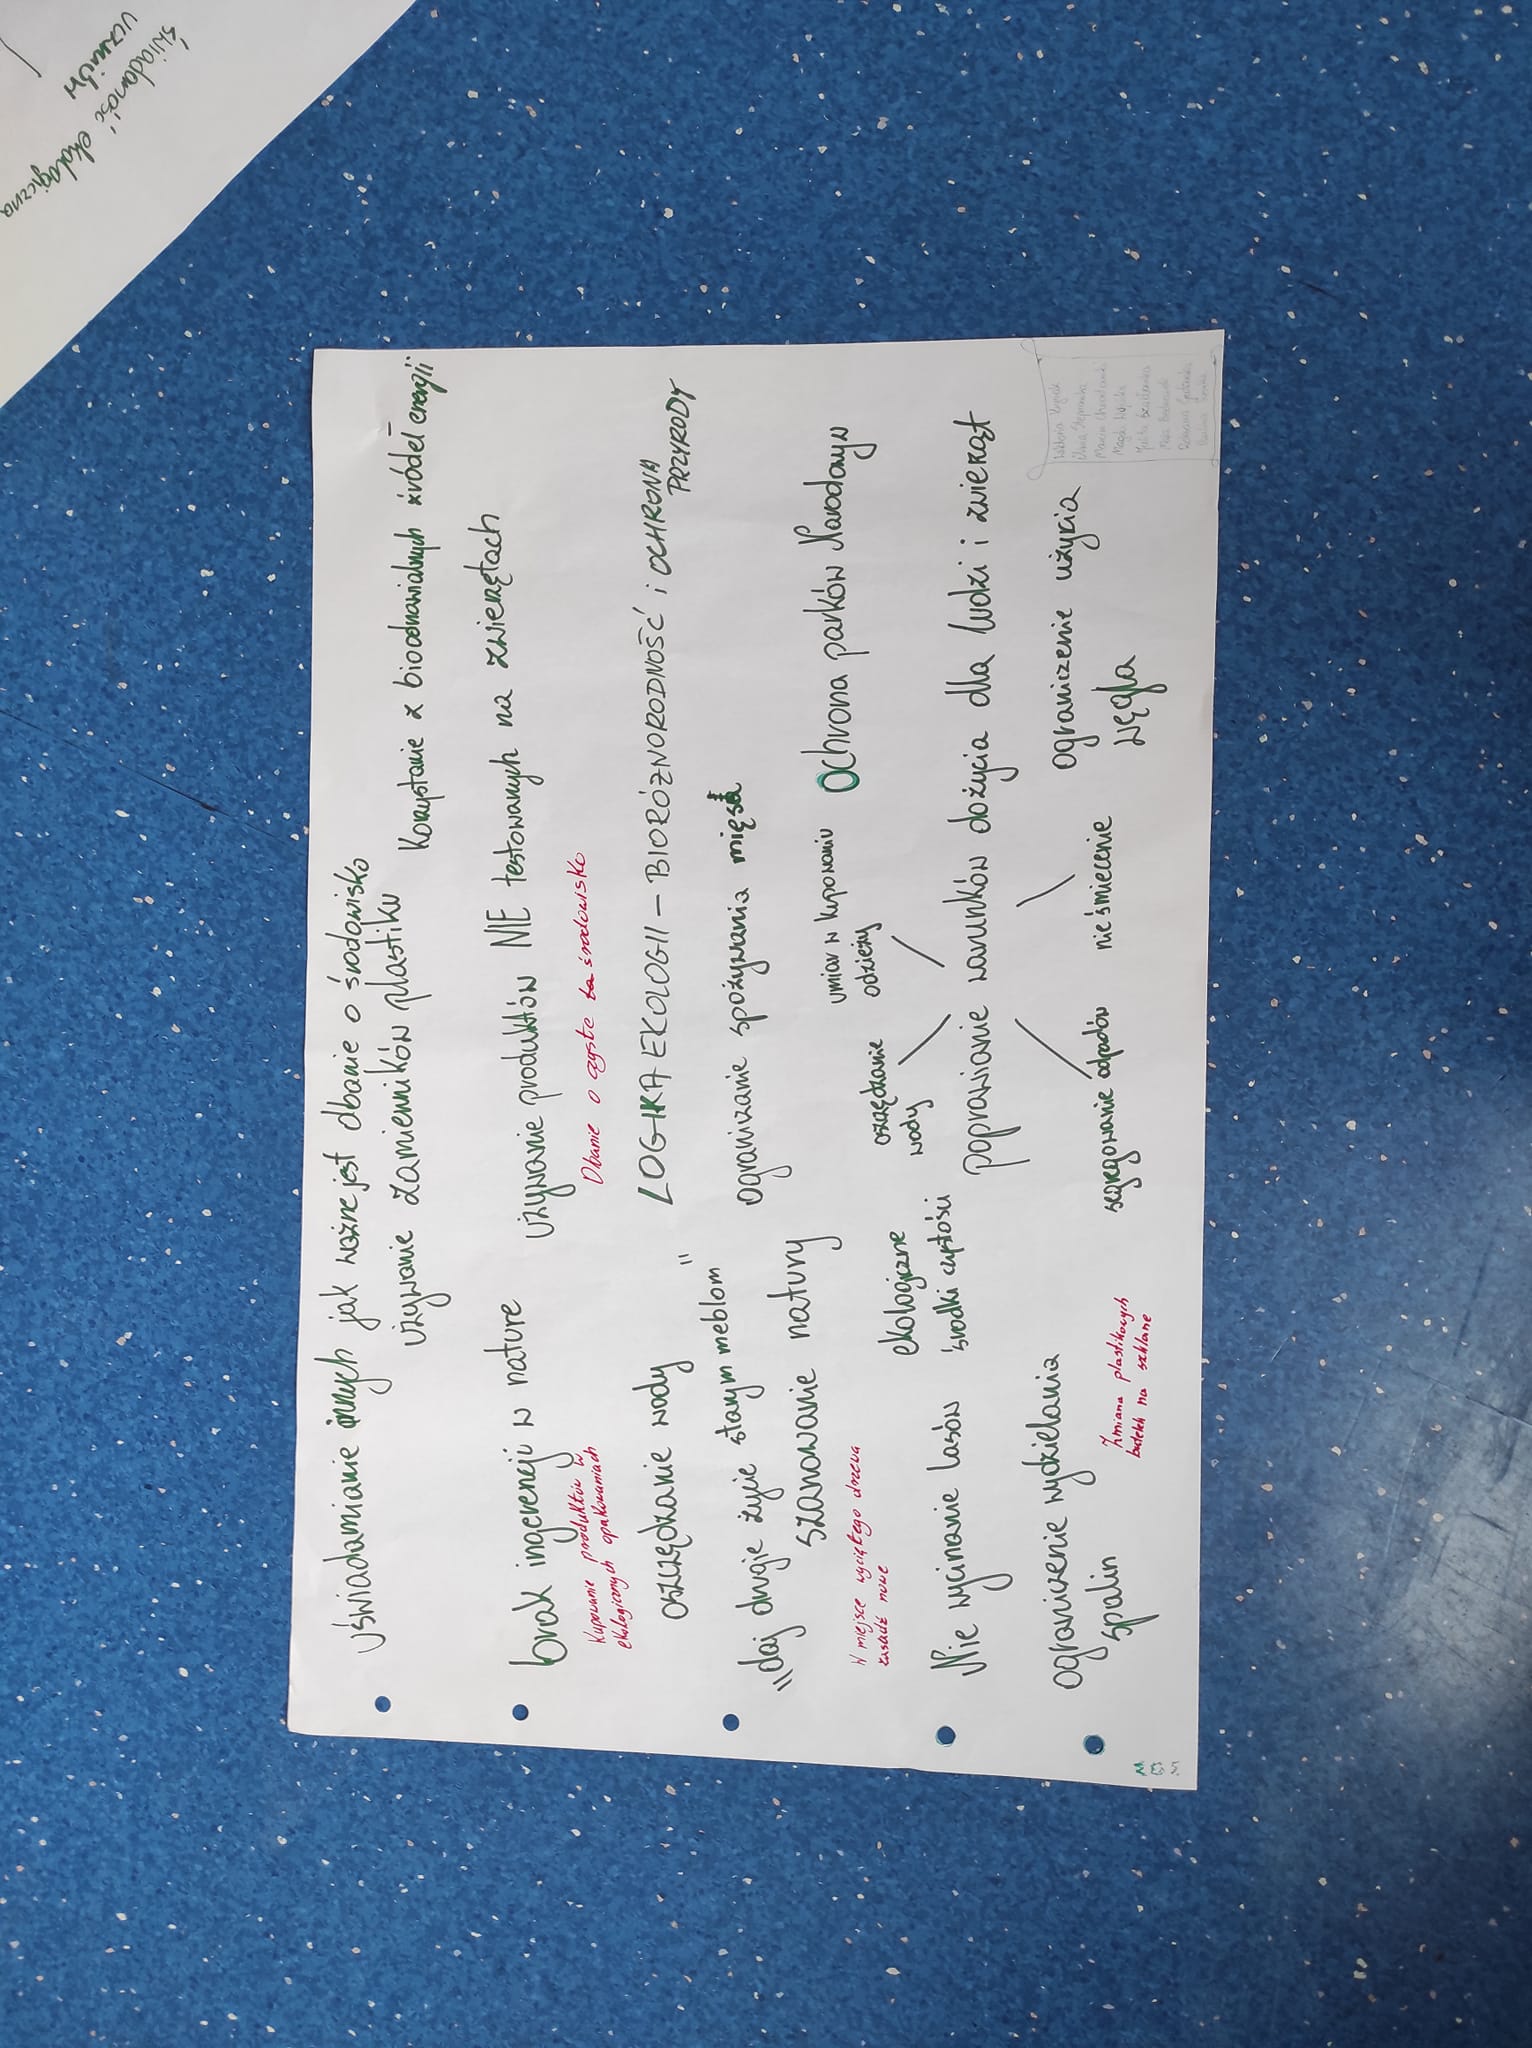 Świadomość ekologiczna
uczniów
uświadamianie innych jak ważne jest dbanie o środowisko
używanie zamienników plastiku
Korzystanie z bioodnawialnych źródeł energii
brak ingerencji w nature
używanie produktów NIE testowanych na zwierzętach
Kupowanie produktów w
ekologicznych opakowaniach
Dbanie o czyste środowisko
oszczędzanie wody
LOGIKA EKOLOGII - BIORÓŻNORODNOŚĆ i OCHRONA
PRZYRODY
"daj drugie życie starym meblom"
ograniczanie spożywania mięsa
szanowanie natury
W miejsce wyciętego drzewa
zasadź nowe
umiar w kupowaniu
odzieży
Ochrona parków Narodowyw
ekologiczne
środki czystości
oszczędzanie
wody
Nie wycinanie lasów
poprawianie warunków dożycia dla ludzi i zwierząt
ograniczenie wydzielania
spalin
segregowanie odpadów
nie śmiecenie
ograniczenie użycia
węgla
Zmiana plastikowych
butelek na szklane